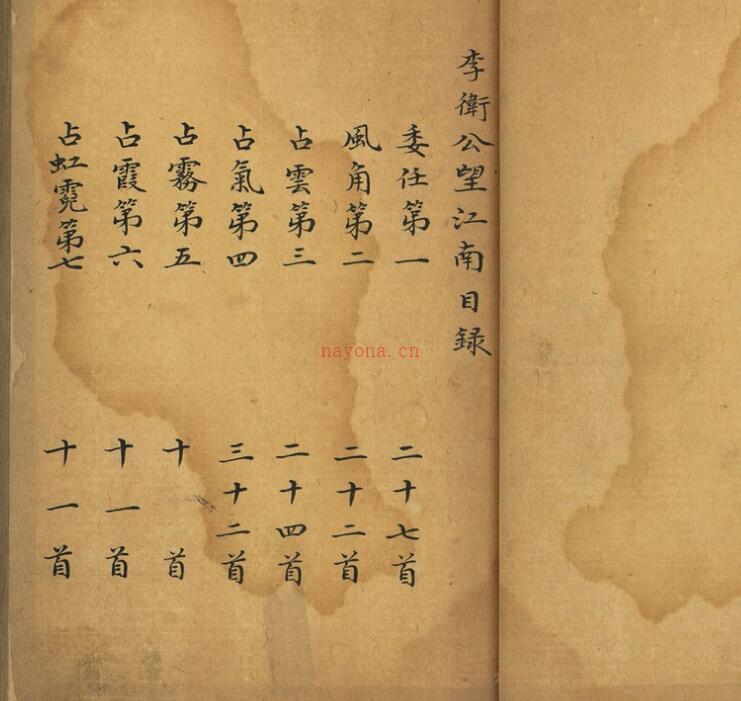 李衛公望江南目録
委任第一 二十七首
風角第二 二十二首
占雲第三 二十四首
占氣第四 三十二首
占霧第五 十首
占霞第六 十一首
占虹霓第七 十一首
nayona.cn